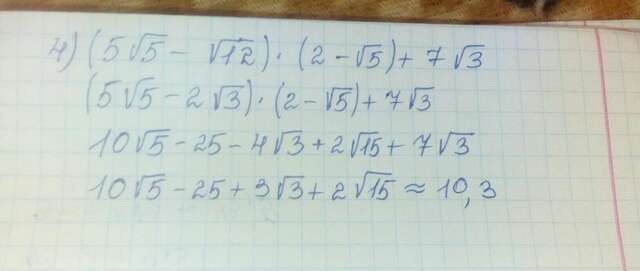 4) (5√5 - √12) · (2 - √5) + 7√3
(5√5 - 2√3) · (2 - √5) + 7√3
10√5 - 25 - 4√3 + 2√15 + 7√3
10√5 - 25 + 3√3 + 2√15 ≈ 10,3